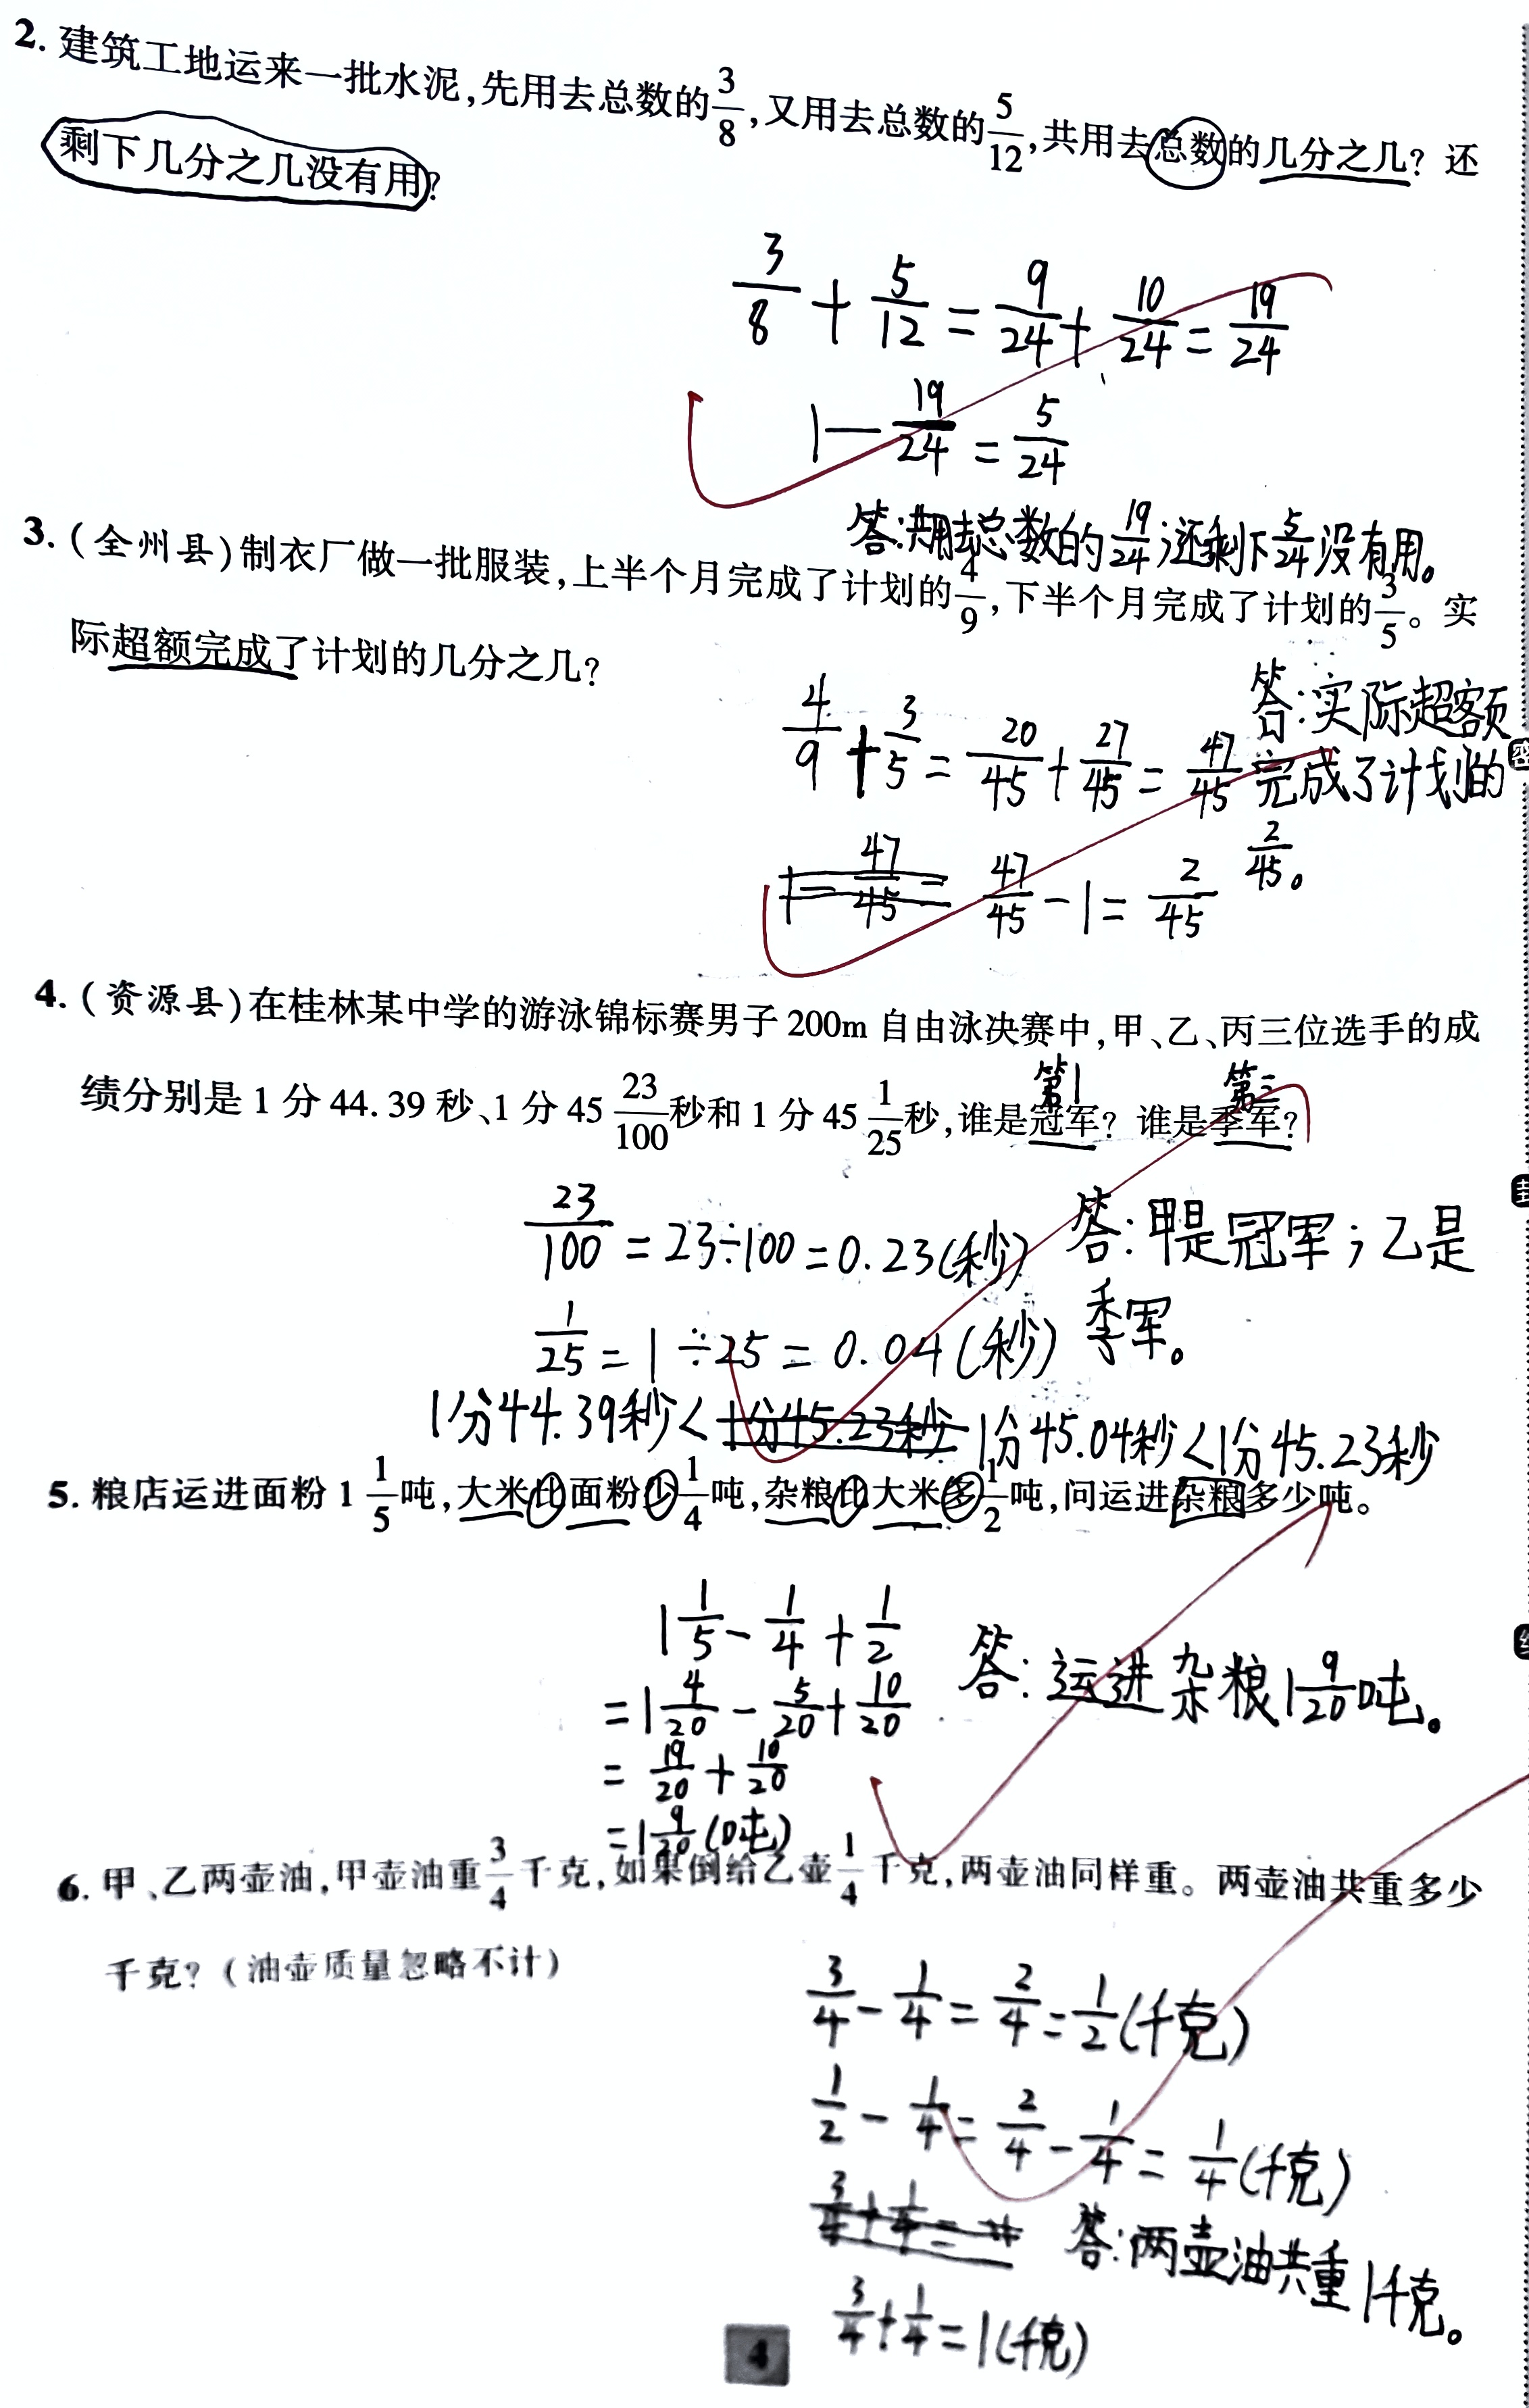 2. 建筑工地运来一批水泥,先用去总数的3/8,又用去总数的5/12,共用去总数的几分之几? 还
剩下几分之几没有用?
3/8 + 5/12 = 9/24 + 10/24 = 19/24
1 — 19/24 = 5/24
答:共用去总数的19/24;还剩下5/24没有用。
3. (全州县)制衣厂做一批服装,上半个月完成了计划的4/9,下半个月完成了计划的3/5。实
际超额完成了计划的几分之几?
4/9 + 3/5 = 20/45 + 27/45 = 47/45
1 - 47/45 = 47/45 - 1 = 2/45
答:实际超额
完成了计划的
2/45。
4. (资源县)在桂林某中学的游泳锦标赛男子 200m 自由泳决赛中,甲、乙、丙三位选手的成
第1 第三
绩分别是 1 分 44.39 秒、1 分 45 23/100 秒和 1 分 45 1/25 秒,谁是冠军? 谁是季军?
23/100 = 23÷100 = 0.23(秒)
1/25 = 1÷25 = 0.04(秒)
答:甲是冠军;乙是
季军。
1分44.39秒< 1分45.23秒 1分45.04秒<1分45.23秒
5. 粮店运进面粉 1 1/5 吨,大米比面粉少1/4吨,杂粮比大米多1/2吨,问运进杂粮多少吨。
1 1/5 - 1/4 + 1/2
= 1 4/20 - 5/20 + 10/20
= 19/20 + 10/20
= 1 9/20 (吨)
答:运进杂粮1 9/20吨。
6. 甲、乙两壶油,甲壶油重3/4千克,如果倒给乙壶1/4千克,两壶油同样重。两壶油共重多少
千克? (油壶质量忽略不计)
3/4 - 1/4 = 2/4 = 1/2(千克)
1/2 - 1/4 = 2/4 - 1/4 = 1/4(千克)
3/4 + 1/4 =
3/4 + 1/4 = 1(千克)
答:两壶油共重1千克。
4
密
封